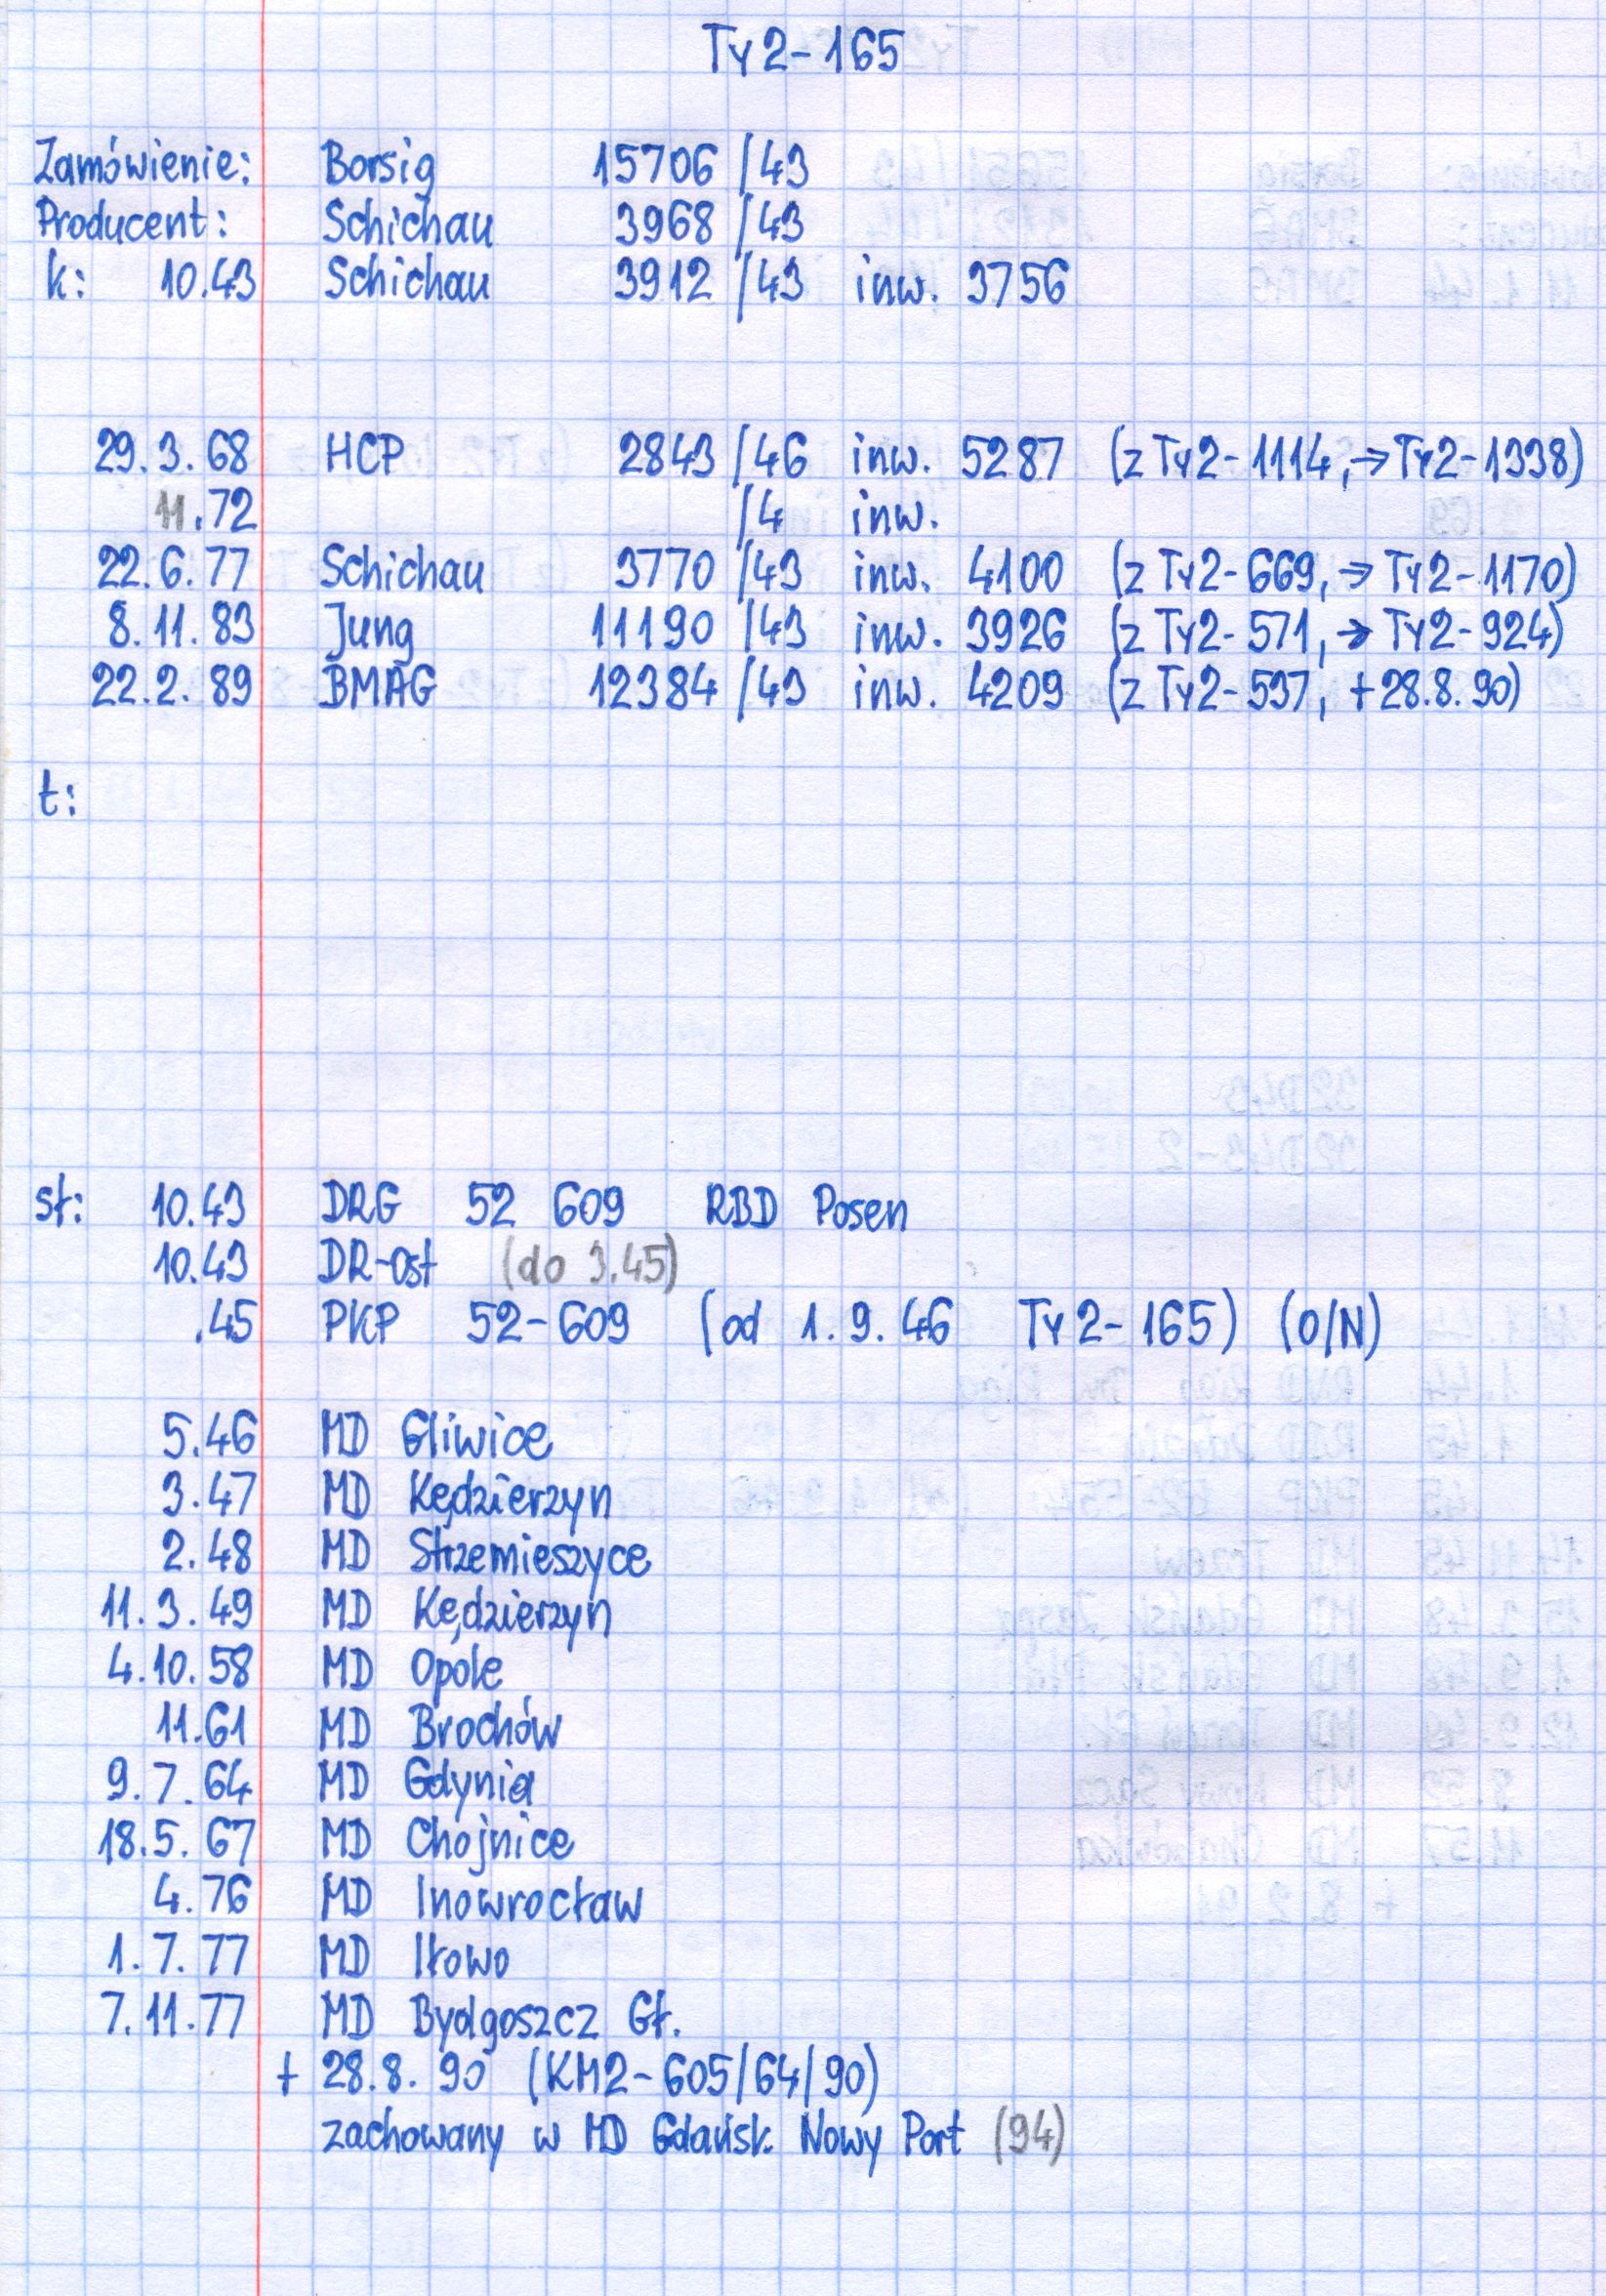 Ty2-165
Zamówienie: Borsig 15706 /43
Producent: Schichau 3968 /43
k: 10.43 Schichau 3912 /43 inw. 3756
29.3.68 HCP 2843 /46 inw. 5287 (z Ty2-1114, → Ty2-1338)
11.72 /4 inw.
22.6.77 Schichau 3770 /43 inw. 4100 (z Ty2-669, → Ty2-1170)
8.11.83 Jung 11190 /43 inw. 3926 (z Ty2-571, → Ty2-924)
22.2.89 BMAG 12384 /43 inw. 4209 (z Ty2-537, +28.8.90)
t:
sł: 10.43 DRG 52 609 RBD Posen
10.43 DR-Ost (do 3.45)
.45 PKP 52-609 (od 1.9.46 Ty2-165) (O/N)
5.46 MD Gliwice
3.47 MD Kędzierzyn
2.48 MD Strzemieszyce
11.3.49 MD Kędzierzyn
4.10.58 MD Opole
11.61 MD Brochów
9.7.64 MD Gdynia
18.5.67 MD Chojnice
4.76 MD Inowrocław
1.7.77 MD Iłowo
7.11.77 MD Bydgoszcz Gł.
+ 28.8.90 (KM2-605/64/90)
zachowany w MD Gdańsk Nowy Port (94)